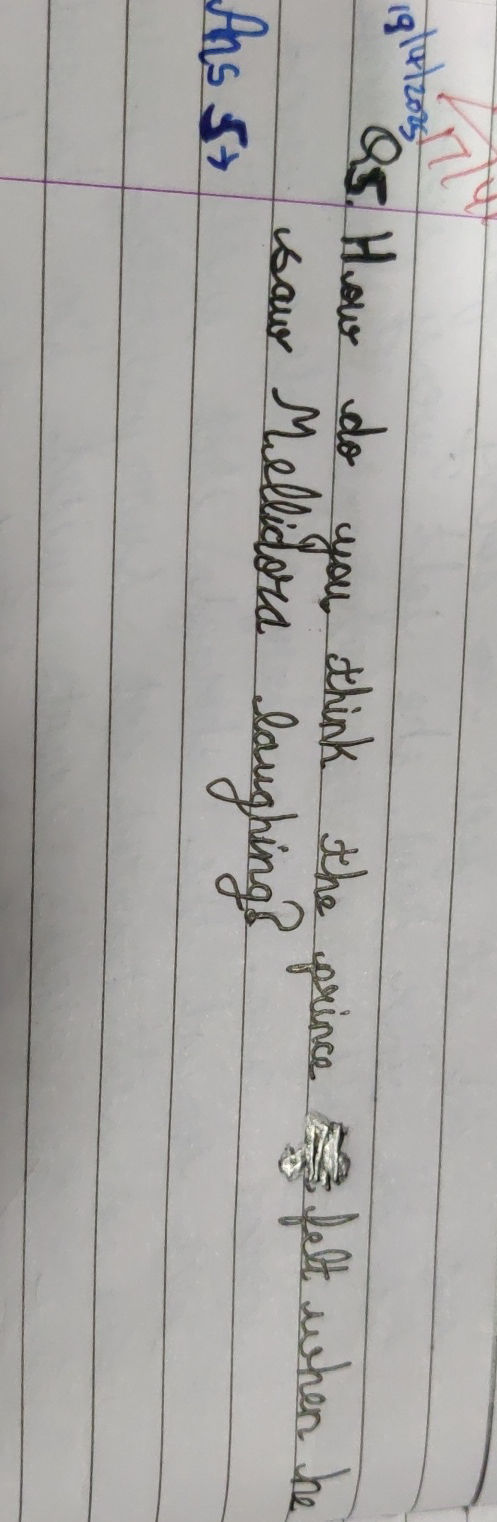 19/4/2025
Q5. How do you think the prince felt when he
saw Mellidora laughing?
Ans 5→